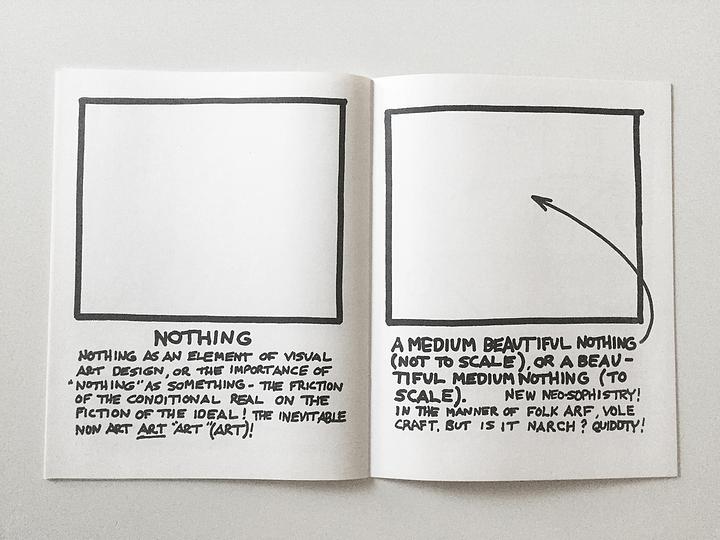 NOTHING
NOTHING AS AN ELEMENT OF VISUAL
ART DESIGN, OR THE IMPORTANCE OF
"NOTHING" AS SOMETHING - THE FRICTION
OF THE CONDITIONAL REAL ON THE
FICTION OF THE IDEAL! THE INEVITABLE
NON ART ART "ART" (ART)!
A MEDIUM BEAUTIFUL NOTHING
(NOT TO SCALE), OR A BEAU-
TIFUL MEDIUM NOTHING (TO
SCALE). NEW NEO-SOPHISTRY!
IN THE MANNER OF FOLK ARF, VOLE
CRAFT, BUT IS IT NARCH? QUIDDITY!